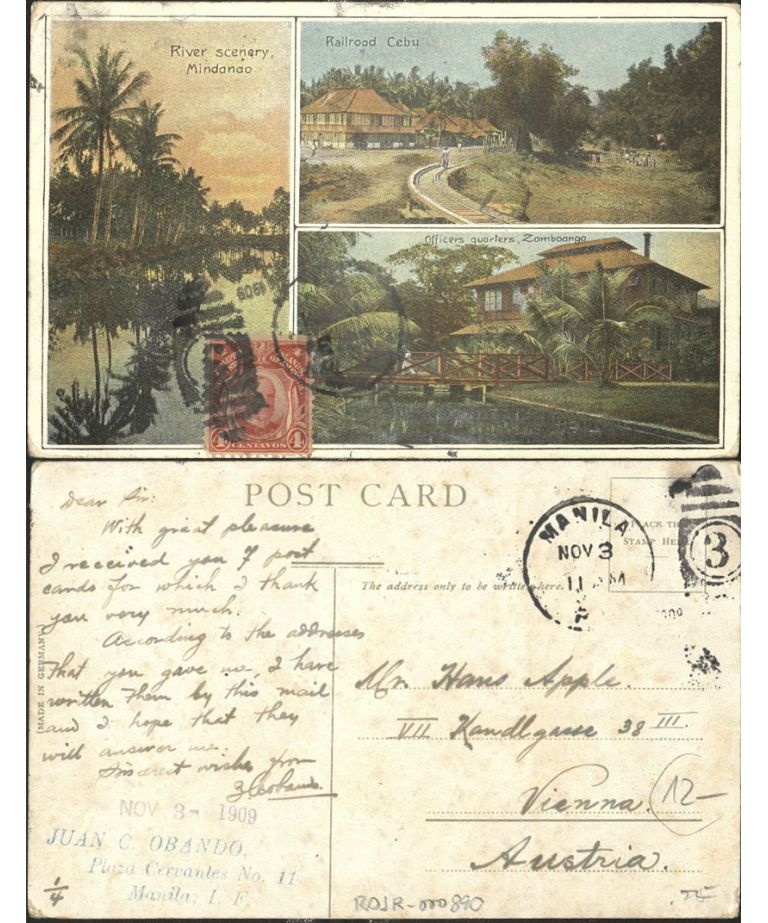 River scenery,
Mindanao
Railroad Cebu
Officers quarters, Zamboanga.
4 CENTAVOS 4
POST CARD
Dear Sir:
With great pleasure
I received you 7 post
cards for which I thank
you very much.
According to the addresses
that you gave me, I have
written them by this mail
and I hope that they
will answer me.
Sincerest wishes from
NOV 3- 1909
JUAN C. OBANDO,
Plaza Cervantes No. 11
Manila, I. F.
1/4
(MADE IN GERMANY)
MANILA
NOV 3
11 AM
3
PLACE THE
STAMP HERE
The address only to be written here.
Mr. Hans Apple.
VII Kandlgasse 38 III.
Vienna.
Austria.
12-
RDJR-000890